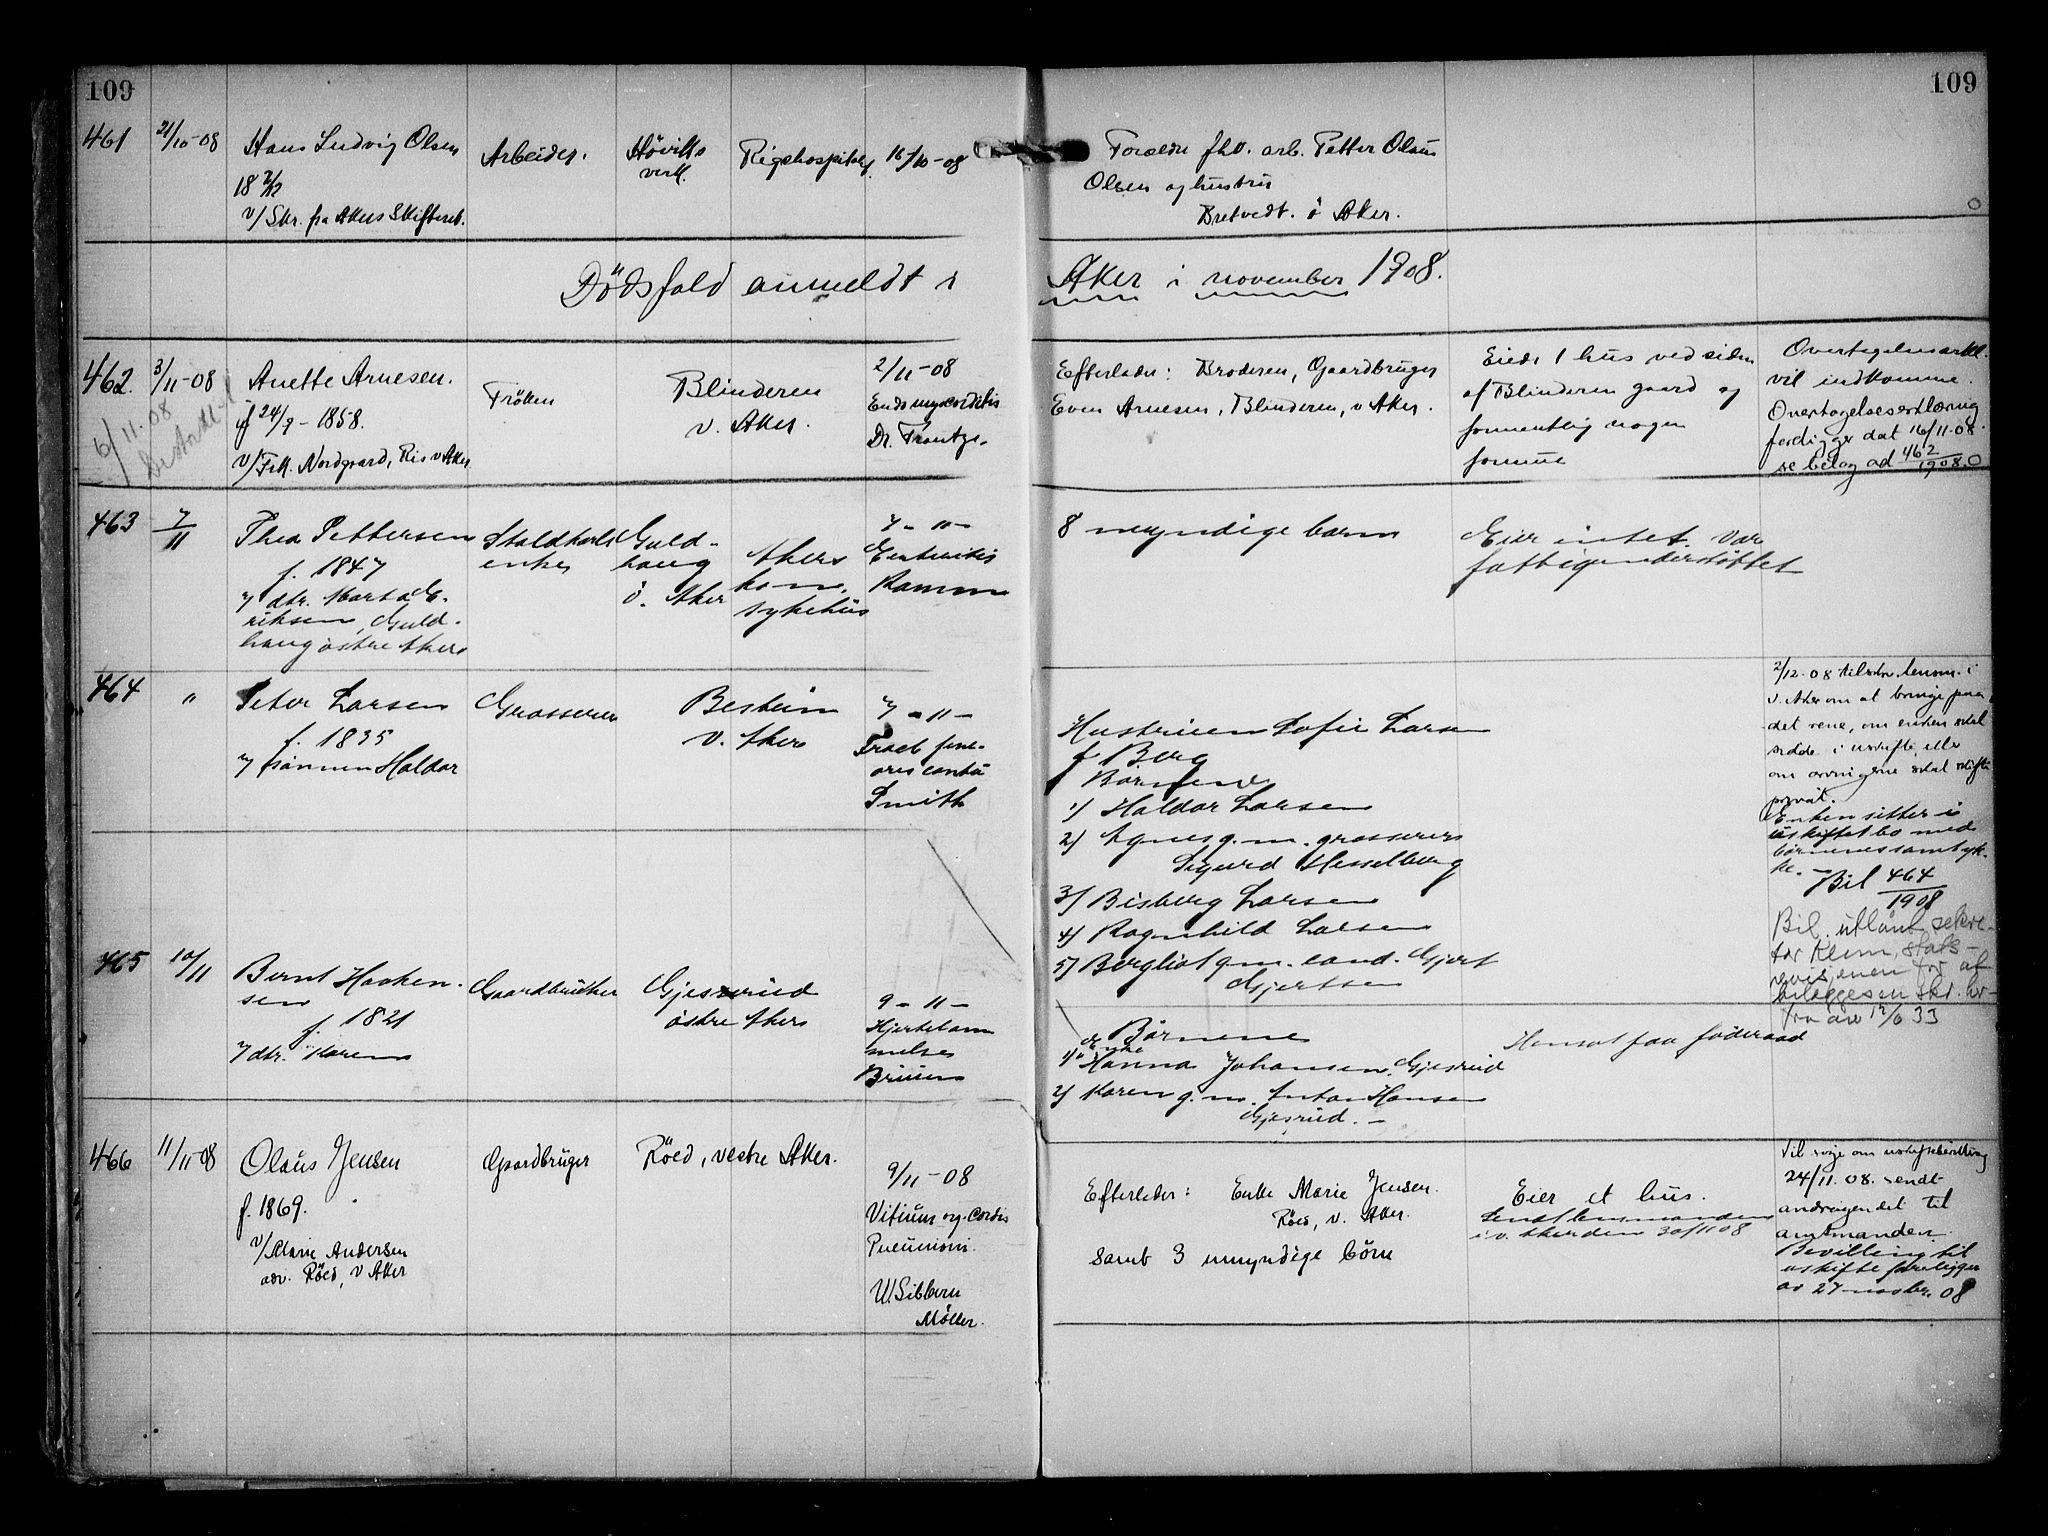 109
109
461
21/10-08
Hans Ludvig Olsen
18 2/12
v/Skr. fra Akers Skifteret.
Arbeider.
Høviks
verk.
Rigshospitalet
16/10-08
Forældre fhv. arb. Petter Olaus
Olsen og hustru
Bretvedt. ö Aker.
Dödsfald anmeldt i Aker i november 1908.
462.
3/11-08
6/11.08
Anette Arnesen.
f 24/9-1858.
v/Frk. Nordgaard, Ris v Aker
Fröken
Blinderen
v. Aker.
2/11-08
Endomyocorditis
Dr. Frantze.
Efterlader: Broderen, Gaardbruger
Even Arnesen, Blinderen, v Aker.
Eied 1 hus ved siden
af Blinderen gaard og
formentlig nogen
formue
Overtagelseserkl.
vil indkomme.
Overtagelseserklæring
foreligger dat 16/11-08.
se bilag ad 462/1908. O
463
7/11
Thea Pettersen
f. 1847
v/ dtr. Marta E-
riksen, Guld-
haug østre Aker
Staldkarls
enke
Guld-
haug
ö. Aker
Akers
kom.
sykehus
7-11-
Enteritis
Ramm
8 myndige barn
Eier intet. Var
fattigunderstøttet
464
"
Peter Larsen
f. 1835
v/ sønnen Haldor
Grosserer
Besheim
v. Aker
7-11-
Smith
Hustruen Sofie Larsen
f Berg
Børnene
1) Haldor Larsen
2) Agnes g.m. grosserer
Sigurd Hesselberg
3) Bisberg Larsen
4) Ragnhild Larsen
5) Bergliot g.m. cand. Gjert
Gjertsen
2/12.08 tilskr. lensm. i
v. Aker om at bringe paa
det rene, om enken skal
sidde i uskifte, eller
om arvingerne skal skifte
privat.
Enken sitter i
uskiftet bo med
børnenes samtyk-
ke. -
Bil 464/1908
Bil. utlånt sekre-
tær Klem, stats-
revisjonen for af
bilegges en skr. her-
fra av 12/6 33
465
10/11
Bernt Haaken-
sen
f. 1821
v/ dtr. Karen
Gaardbruker
Gjesrud
østre Aker
9-11-
Hjertelam
melse
Bruun
Børnene
Enke
1) Hanna Johansen, Gjesrud
2) Karen g.m. Anton Hansen
Gjesrud. -
Hensat paa føderaad
466
11/11-08
Olaus Jensen
f. 1869.
v/Marie Andersen
adr. Röed, v Aker
Gaardbruger
Röed, vestre Aker.
9/11-08
Vitium org. cordis
Pneumoni.
W. Sibbern
Møller.
Efterlader: Enke Marie Jensen.
Röed, v. Aker.
samt 3 umyndige børn
Eier et hus.
Sendt lensmanden
i v. Aker den 30/11 08
Vil søge om uskiftebevilling
24/11.08. sendt
andragendet til
amtmanden
Bevilling til
uskifte foreligger
av 27 novbr. 08